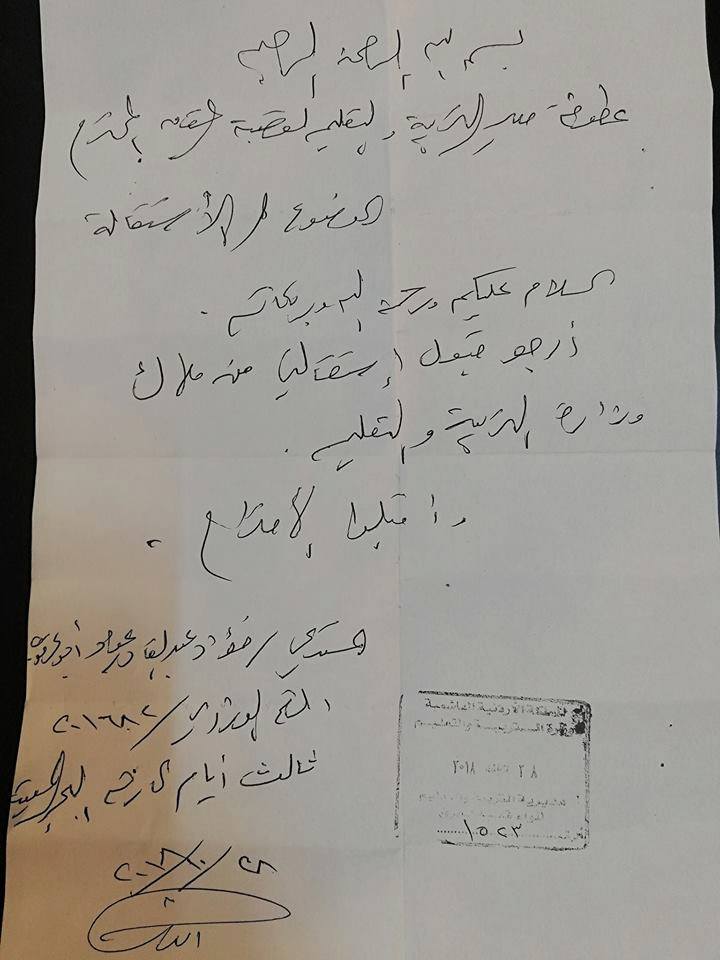 بسم الله الرحمن الرحيم
عطوفة مدير التربية والتعليم لقصبة المحترم
الموضوع / الأستقالة
السلام عليكم ورحمة الله وبركاته .
أرجو قبول إستقالتي من ملاك
وزارة التربية والتعليم .
واقبلوا الأحترام .
المستدعي / فؤاد عبدالقادر
الرقم الوزاري / ٢٠١٦٨٢
ثالث أيام البحر الميت
٢٨/١٠/٢٠١٨
المملكة الأردنية الهاشمية
وزارة التربية والتعليم
٢٨ ٢٠١٨
مديرية التربية والتعليم
١٥٢٣